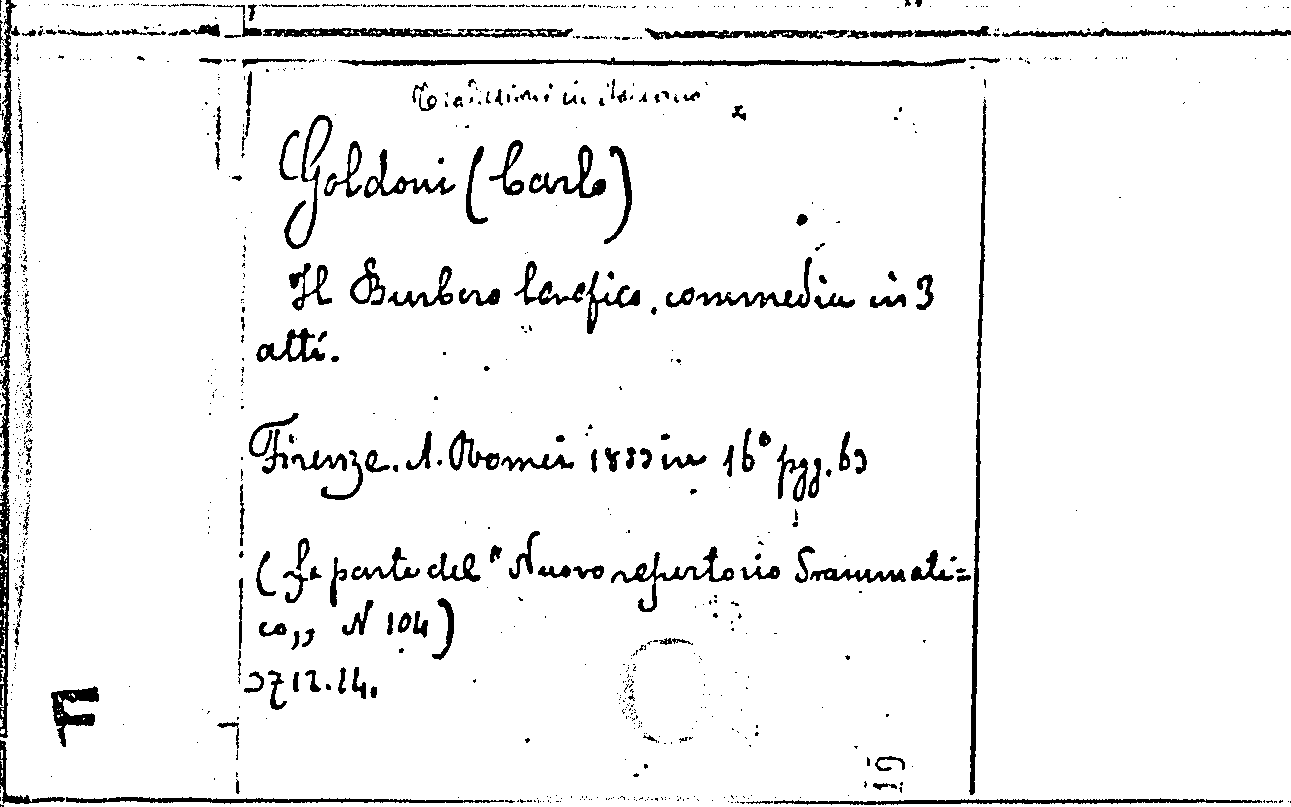 Traduzioni in italiano
Goldoni (Carlo)
Il Burbero benefico, commedia in 3
atti.
Firenze. A. Romei 1853 in 16° pgg. 63
(fa parte del "Nuovo repertorio Drammati=
co,, N 104)
37 12.14.
F
19